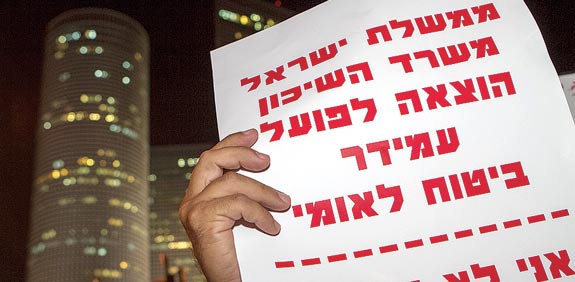 ממשלת ישראל
משרד השיכון
הוצאה לפועל
עמידר
ביטוח לאומי
אני